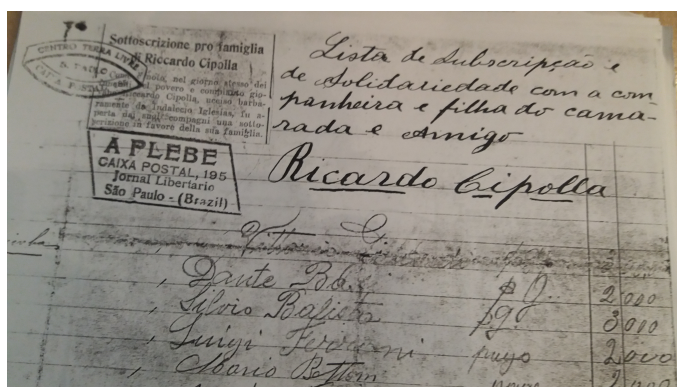 CENTRO TERRA LIVRE
S. PAULO
Sottoscrizione pro famiglia
di Riccardo Cipolla
nel giorno stesso del
del povero e compianto
Riccardo Cipolla, ucciso barba-
ramente da Indalecio Iglesias, fu a-
perta dai compagni una sotto-
scrizione in favore della sua famiglia.
A PLEBE
CAIXA POSTAL, 195
Jornal Libertario
São Paulo - (Brazil)
Lista de Subscripção e
de Solidariedade com a com
panheira e filha do cama-
rada e Amigo
Ricardo Cipolla
Vittorio
Dante pg. 2000
Silvio Batista pg. 3000
Luigi pago 2000
Mario